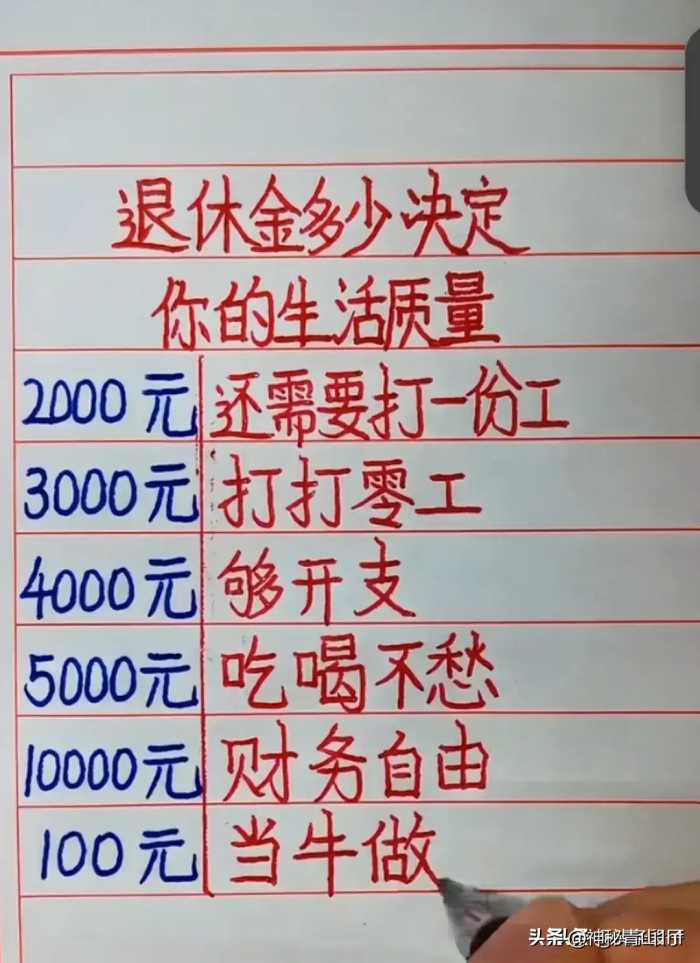 退休金多少决定
你的生活质量
2000元 还需要打一份工
3000元 打打零工
4000元 够开支
5000元 吃喝不愁
10000元 财务自由
100元 当牛做